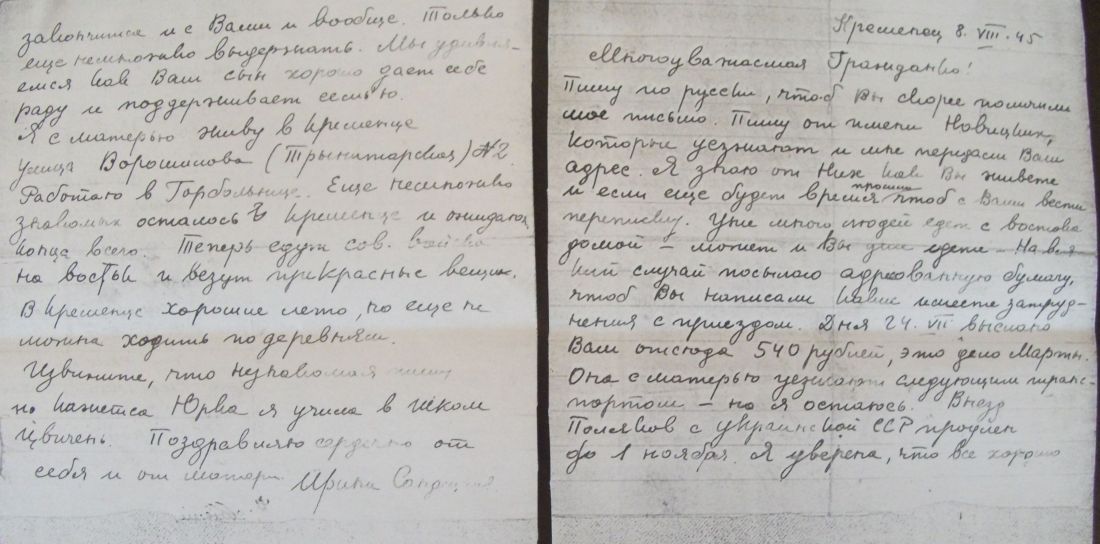 Кременец 8. VIII. 45
Многоуважаемая Гражданко!
Пишу по русски, чтоб Вы скорее получили
мое письмо. Пишу от имени Новицких,
которые уезжают и мне передали Ваш
адрес. Я знаю от них как Вы живете
и если еще будет время прошу чтоб с Вами вести
переписку. Уже много людей едет с востока
домой – может и Вы уже едете. На вся
кий случай посылаю адресованную бумагу,
чтоб Вы написали какие имеете затруд-
нения с приездом. Дня 24. VII выслано
Вам отсюда 540 рублей, это дело Марты.
Она с матерью уезжают следующим транс-
портом – но я остаюсь. Выезд
Поляков с украинской ССР продлен
до 1 ноября. Я уверена, что все хорошо
закончится и с Вами и вообще. Только
еще немножко выдержать. Мы удивля-
емся как Ваш сын хорошо дает себе
раду и поддерживает семью.
Я с матерью живу в Кременце
улица Ворошилова (Трынитарская) №2.
Работаю в Горбольнице. Еще немножко
знакомых осталось в Кременце и ожидают
конца всего. Теперь едут сов. войска
на восток и везут прекрасные вещи.
В Кременце хорошие лето, но еще не
можна ходить по деревням.
Извините, что незнакомая пишу
но кажется Юрка я учила в
Поздравляю сердечно от
себя и от матери Ирина